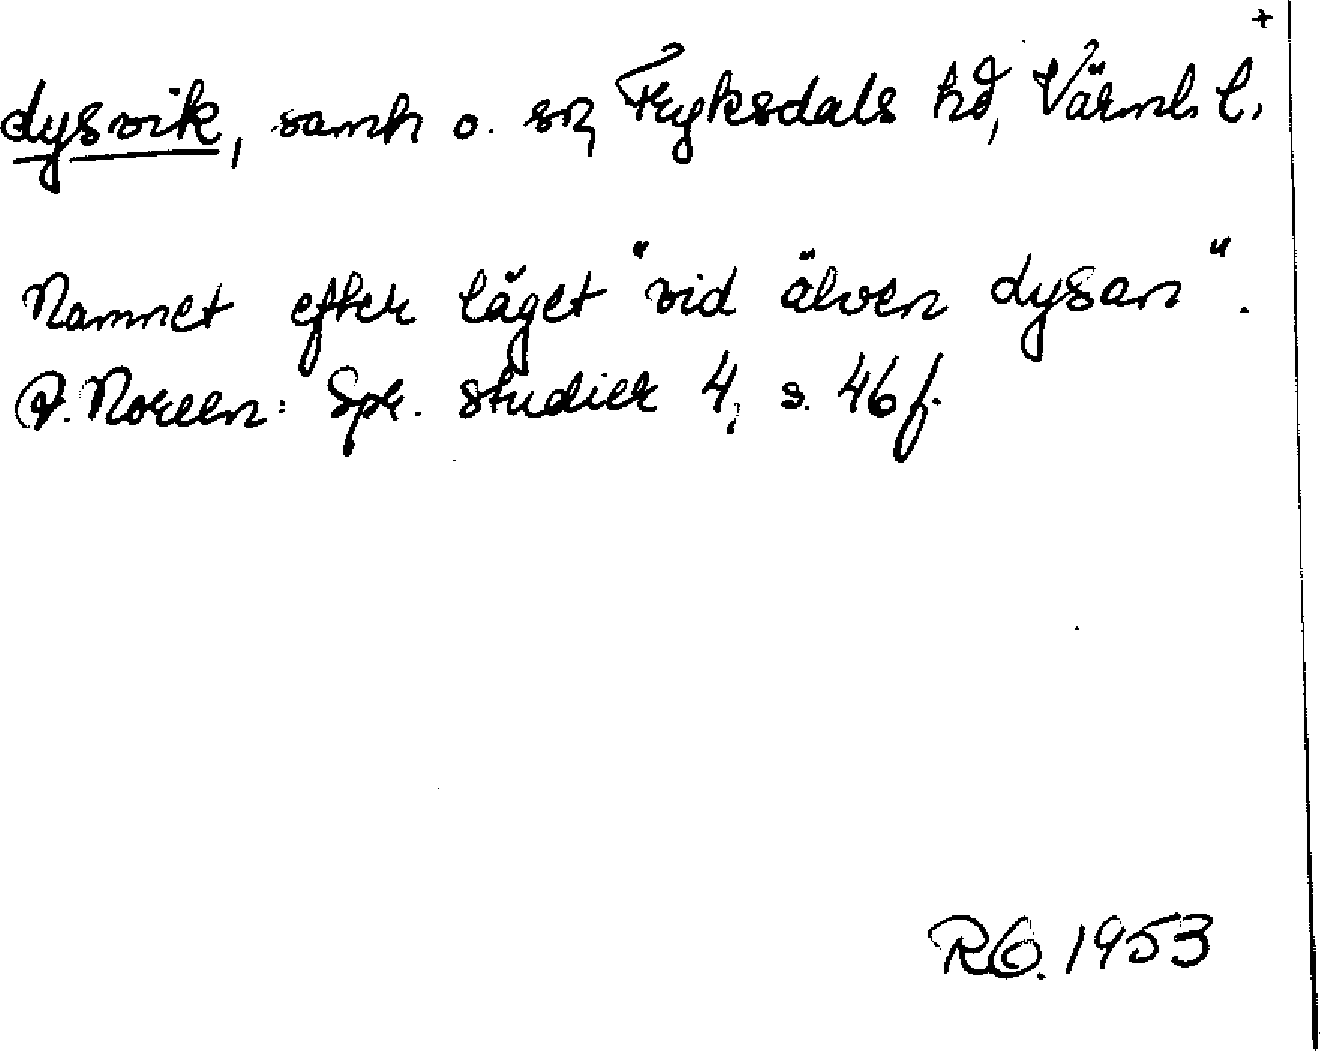 +
Lysvik, samh o. sn, Fryksdals hd, Värml. l.
Namnet efter läget "vid älven Lysan".
A. Noreen: Spr. studier 4, s. 46 f.
RO. 1953